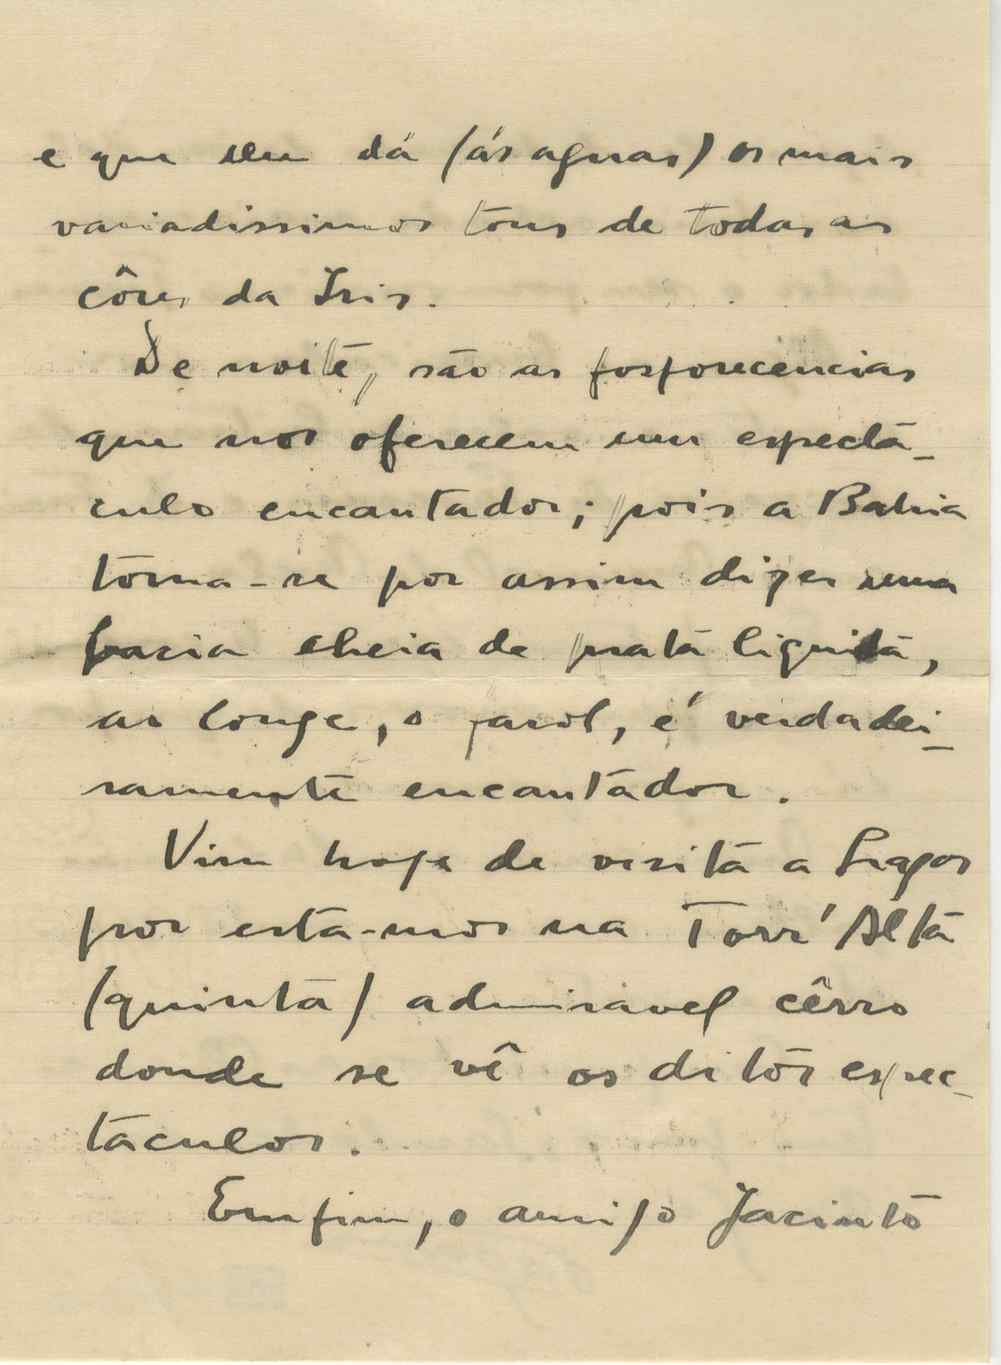 e que lhe dá (ás aguas) os mais
variadissimos tons de todas as
côres da Iris.
De noite, são as fosforecencias
que nos oferecem um espectá-
culo encantador; pois a Bahia
torna-se por assim dizer uma
bacia cheia de prata liquida,
ao longe, o farol, é verdadei-
ramente encantador.
Vim hoje de visita a Lagos
por estar-mos na Torr'Alta
(quinta) admiravel cêrro
donde se vê os ditos espec-
taculos.
Emfim, o amigo Jacinto